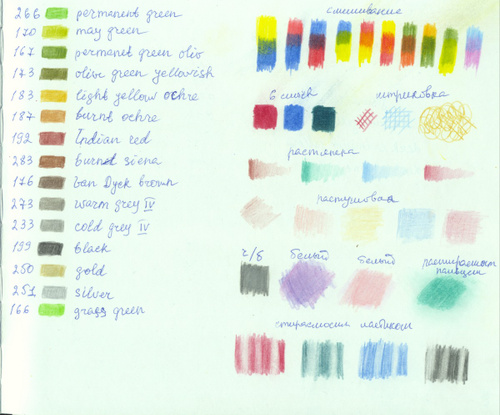 266 permanent green
170 may green
167 permanet green olio
173 olive green yellowish
183 light yellow ochre
187 burnt ochre
192 Indian red
283 burned siena
176 van Dyck brown
273 warm grey IV
233 cold grey IV
199 black
250 gold
251 silver
166 grass green
смешивание
6 слоёв
штриховка
растяжка
растушовка
ч/б
белый
белый
растирание пальцем
стираемость ластиком